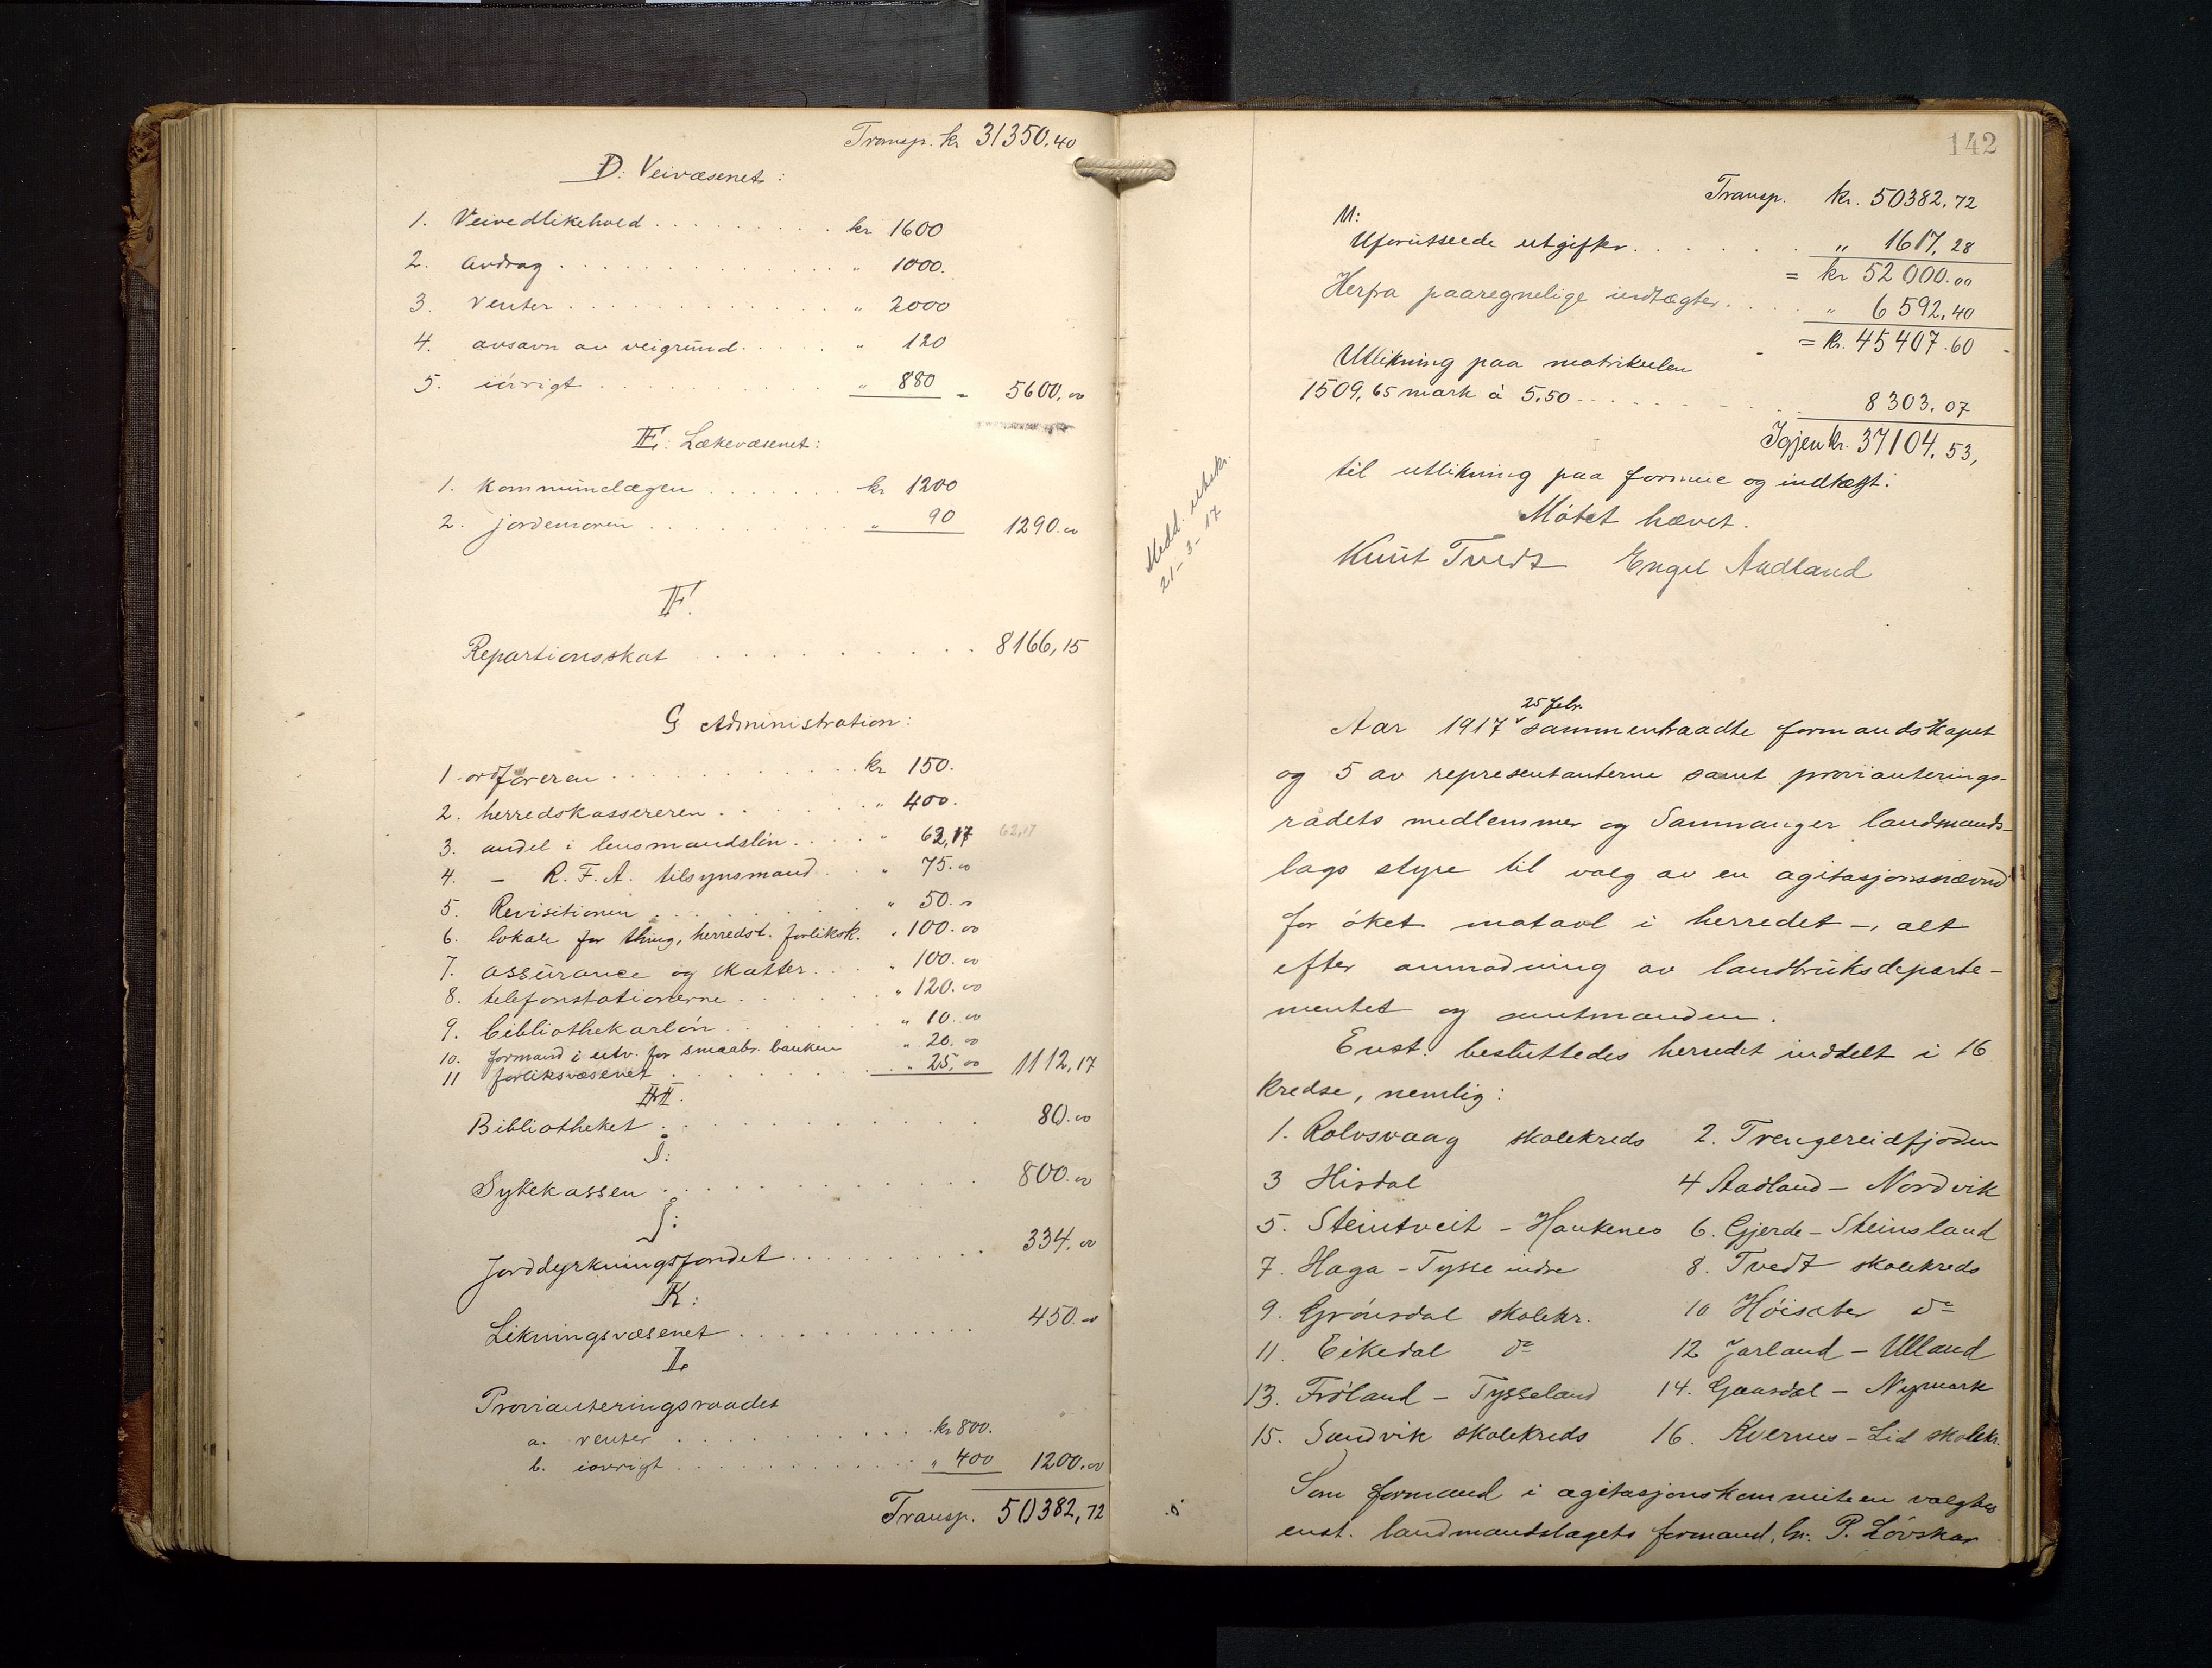 Transp. kr 31350.40
D. Veivæsenet:
1. Veivedlikehold . . . . . . . . . kr 1600
2. avdrag . . . . . . . . . . . . . . „ 1000.
3. renter . . . . . . . . . . . . . „ 2000
4. avsavn av veigrund . . . . . „ 120
5. iøvrigt . . . . . . . . . . . „ 880 = 5600.00
E: Lækevæsenet:
1. kommunelægen . . . . . . . kr 1200
2. jordemoren . . . . . . . . . „ 90 1290.00
F.
Repartionsskat . . . . . . . . . . . 8166,15
G Administration:
1. ordføreren . . . . . . . . . . . kr 150.
2. herredskassereren . . . . . . . „ 400.
3. andel i lensmandsløn . . . . „ 62,17 62,17
4. – R. F. A. tilsynsmand . . „ 75.00
5. Revisitionen . . . . . . . . . „ 50.00
6. lokale for thing, herredst. forliksk. „ 100.00
7. assurance og skatter . . . . „ 100.00
8. telefonstationerne . . . . . . „ 120.00
9. bibliothekarløn . . . . . . . „ 10.00
10. formand i utv. for smaabr. banken „ 20.00
11 forliksvæsenet . . . . . . . . . „ 25.00 1112,17
H.
Bibliotheket . . . . . . . . . . . . 80.00
I:
Sykekassen . . . . . . . . . . . . 800.00
J:
Jorddyrkningsfondet . . . . . . . . . . 334.00
K:
Likningsvæsenet . . . . . . . . . . . . 450.00
L
Provianteringsraadet
a. renter . . . . . . . . . . . kr 800.
b. iøvrigt . . . . . . . . . . . . „ 400 1200.00
Transp. 50382,72
142
Transp. kr. 50382,72
M:
Uforutseede utgifter . . . . . . . „ 1617,28
= kr 52000.00
Herfra paaregnelige indtægter . . . . „ 6592,40
= kr. 45407.60
Utlikning paa matrikulen
1509,65 mark á 5.50 . . . . . . . . . 8303.07
Igjen kr. 37104,53,
til utlikning paa formue og indtægt.
Møtet hævet.
Knut Tvedt Engel Aadland
Medd. utskr.
21-3-17
25 febr.
Aar 1917 sammentraadte formandskapet
og 5 av representanterne samt provianterings-
rådets medlemmer og Samnanger landmands-
lags styre til valg av en agitasjonsnævnd
for øket matavl i herredet –, alt
efter anmodning av landbruksdeparte-
mentet og amtmanden.
Enst. besluttedes herredet inddelt i 16
kredse, nemlig:
1. Rolvsvaag skolekreds 2. Trengereidfjorden
3 Hisdal 4 Aadland – Nordvik
5. Steintveit – Haukenes 6. Gjerde – Steinsland
7. Haga – Tysse indre 8. Tvedt skolekreds
9. Grønsdal skolekr. 10 Høisæter do
11. Eikedal do 12 Jarland – Ulland
13. Frøland – Tysseland 14. Gaasdal – Nymark
15. Sandvik skolekreds 16. Kvernes – Lid skolekr.
Som formand i agitasjonskommiteen valgtes
enst. landmandslagets formand, hr. P. Løvskar